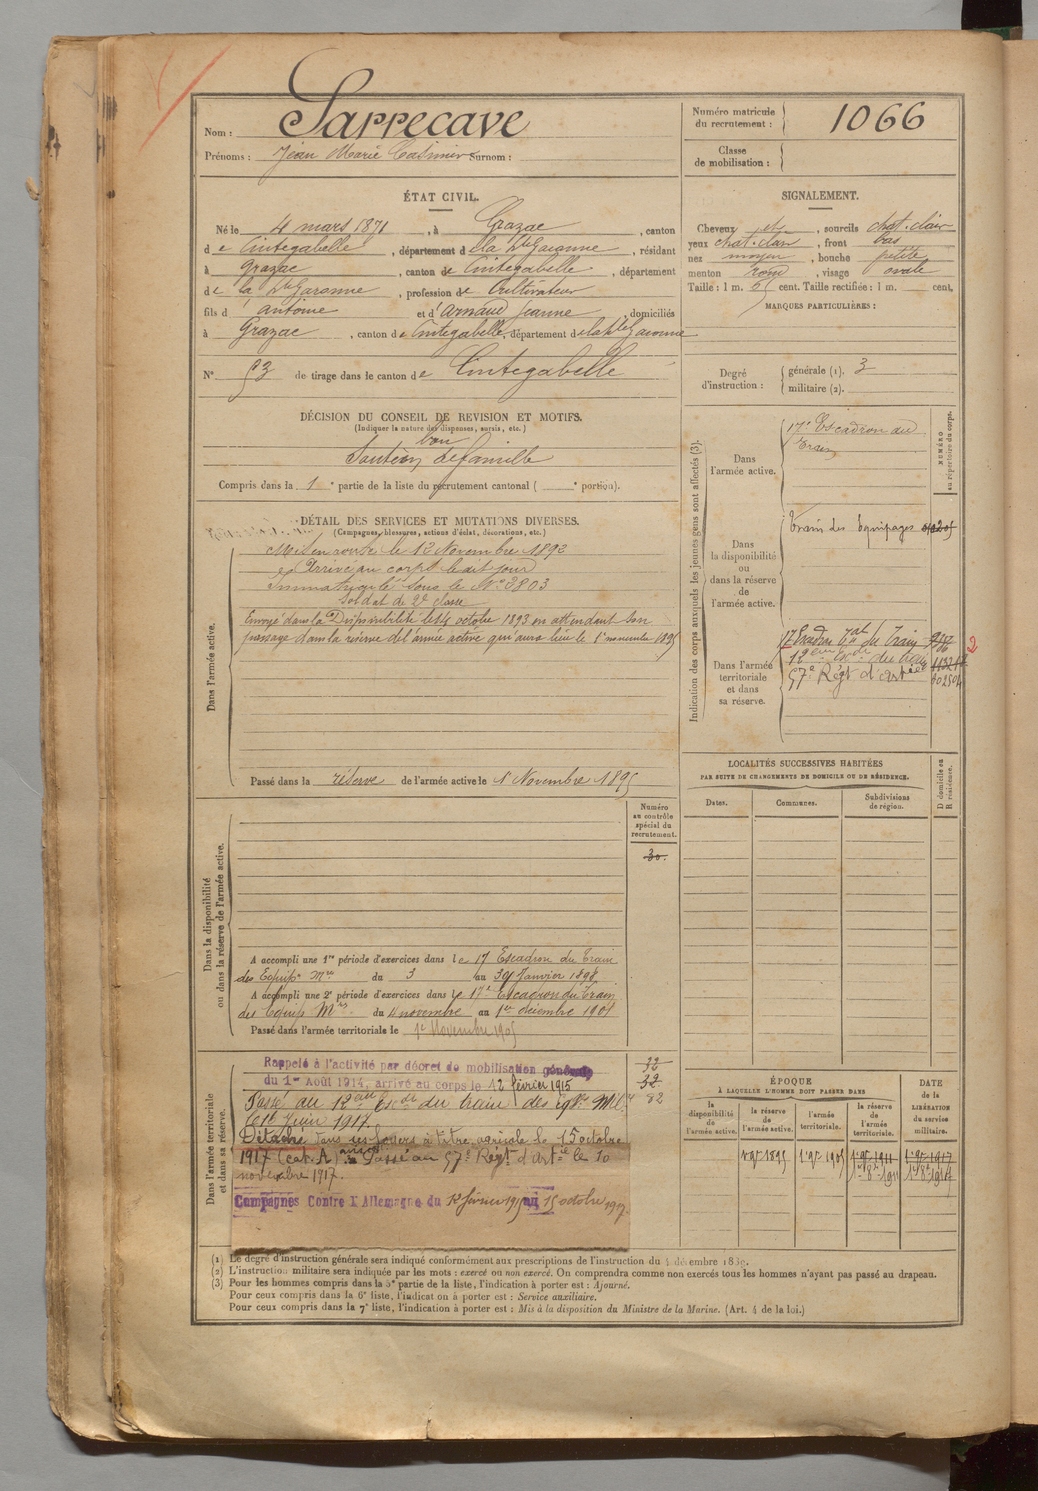 Nom : Sarrecave
Prénoms : Jean Marie Casimir Surnom :
Numéro matricule du recrutement : 1066
Classe de mobilisation :
ÉTAT CIVIL.
Né le 4 mars 1871, à Grazac, canton
de Cintegabelle, département de la Hte Garonne, résidant
à Grazac, canton de Cintegabelle, département
de la Hte Garonne, profession de Cultivateur
fils d'antoine et d'arnaud Jeanne, domiciliés
à Grazac, canton de Cintegabelle, département de la Hte Garonne
N° 53 de tirage dans le canton de Cintegabelle
SIGNALEMENT.
Cheveux et, sourcils chat. clair
yeux chat. clair, front bas
nez moyen, bouche petite
menton rond, visage ovale
Taille : 1 m. 65 cent. Taille rectifiée : 1 m. cent.
MARQUES PARTICULIÈRES :
Degré d'instruction : générale (1). 3
militaire (2).
DÉCISION DU CONSEIL DE REVISION ET MOTIFS.
(Indiquer la nature des dispenses, sursis, etc.)
bon
Soutien de famille
Compris dans la 1e partie de la liste du recrutement cantonal ( e portion).
DÉTAIL DES SERVICES ET MUTATIONS DIVERSES.
(Campagnes, blessures, actions d'éclat, décorations, etc.)
Dans l'armée active.
Mis en route le 12 Novembre 1892
Arrivé au corps le dit jour
Immatriculé sous le N° 3803
Soldat de 2e classe
Envoyé dans la Disponibilité le octobre 1893 en attendant son
passage dans la réserve de l'armée active qui aura lieu le 1er novembre 1895
Passé dans la réserve de l'armée active le 1 Novembre 1895
Indication des corps auxquels les jeunes gens sont affectés (3).
NUMÉRO au répertoire du corps.
Dans l'armée active.
17e Escadron du
train
Dans la disponibilité ou dans la réserve de l'armée active.
Train des Équipages
Dans l'armée territoriale et dans sa réserve.
17 Escadron du Train
12eme du train
57e Régt d'artie
2
LOCALITÉS SUCCESSIVES HABITÉES
PAR SUITE DE CHANGEMENTS DE DOMICILE OU DE RÉSIDENCE.
Dates. Communes. Subdivisions de région. D domicile ou R résidence.
Numéro au contrôle spécial du recrutement.
30.
Dans la disponibilité ou dans la réserve de l'armée active.
A accompli une 1re période d'exercices dans le 17 Escadron du Train
des Equips Mres du 3 au 30 Janvier 1898
A accompli une 2e période d'exercices dans le 17e Escadron du Train
des Equip Mres du 4 novembre au 1er décembre 1901
Passé dans l'armée territoriale le 1er Novembre 1905
Dans l'armée territoriale et dans sa réserve.
Rappelé à l'activité par décret de mobilisation générale
du 1er Août 1914, arrivé au corps le 12 février 1915
Passé au 12eme Escon du train des Eqges Mil.
le 1er Juin 1917.
Détaché dans ses foyers à titre agricole le 15 octobre
1917 (cat. A) Passé au 57e Régt d'Artie le 10
novembre 1917.
Campagnes Contre l'Allemagne du 12 février 1915 au 15 octobre 1917.
32
32
82
ÉPOQUE
À LAQUELLE L'HOMME DOIT PASSER DANS
la disponibilité de l'armée active. la réserve de l'armée active. l'armée territoriale. la réserve de l'armée territoriale.
DATE de la LIBÉRATION du service militaire.
1 9bre 1895 1 9bre 1905 1 9bre 1911 1 9bre 1917
(1) Le degré d'instruction générale sera indiqué conformément aux prescriptions de l'instruction du 4 décembre 1889.
(2) L'instruction militaire sera indiquée par les mots : exercé ou non exercé. On comprendra comme non exercés tous les hommes n'ayant pas passé au drapeau.
(3) Pour les hommes compris dans la 5e partie de la liste, l'indication à porter est : Ajourné.
Pour ceux compris dans la 6e liste, l'indication à porter est : Service auxiliaire.
Pour ceux compris dans la 7e liste, l'indication à porter est : Mis à la disposition du Ministre de la Marine. (Art. 4 de la loi.)